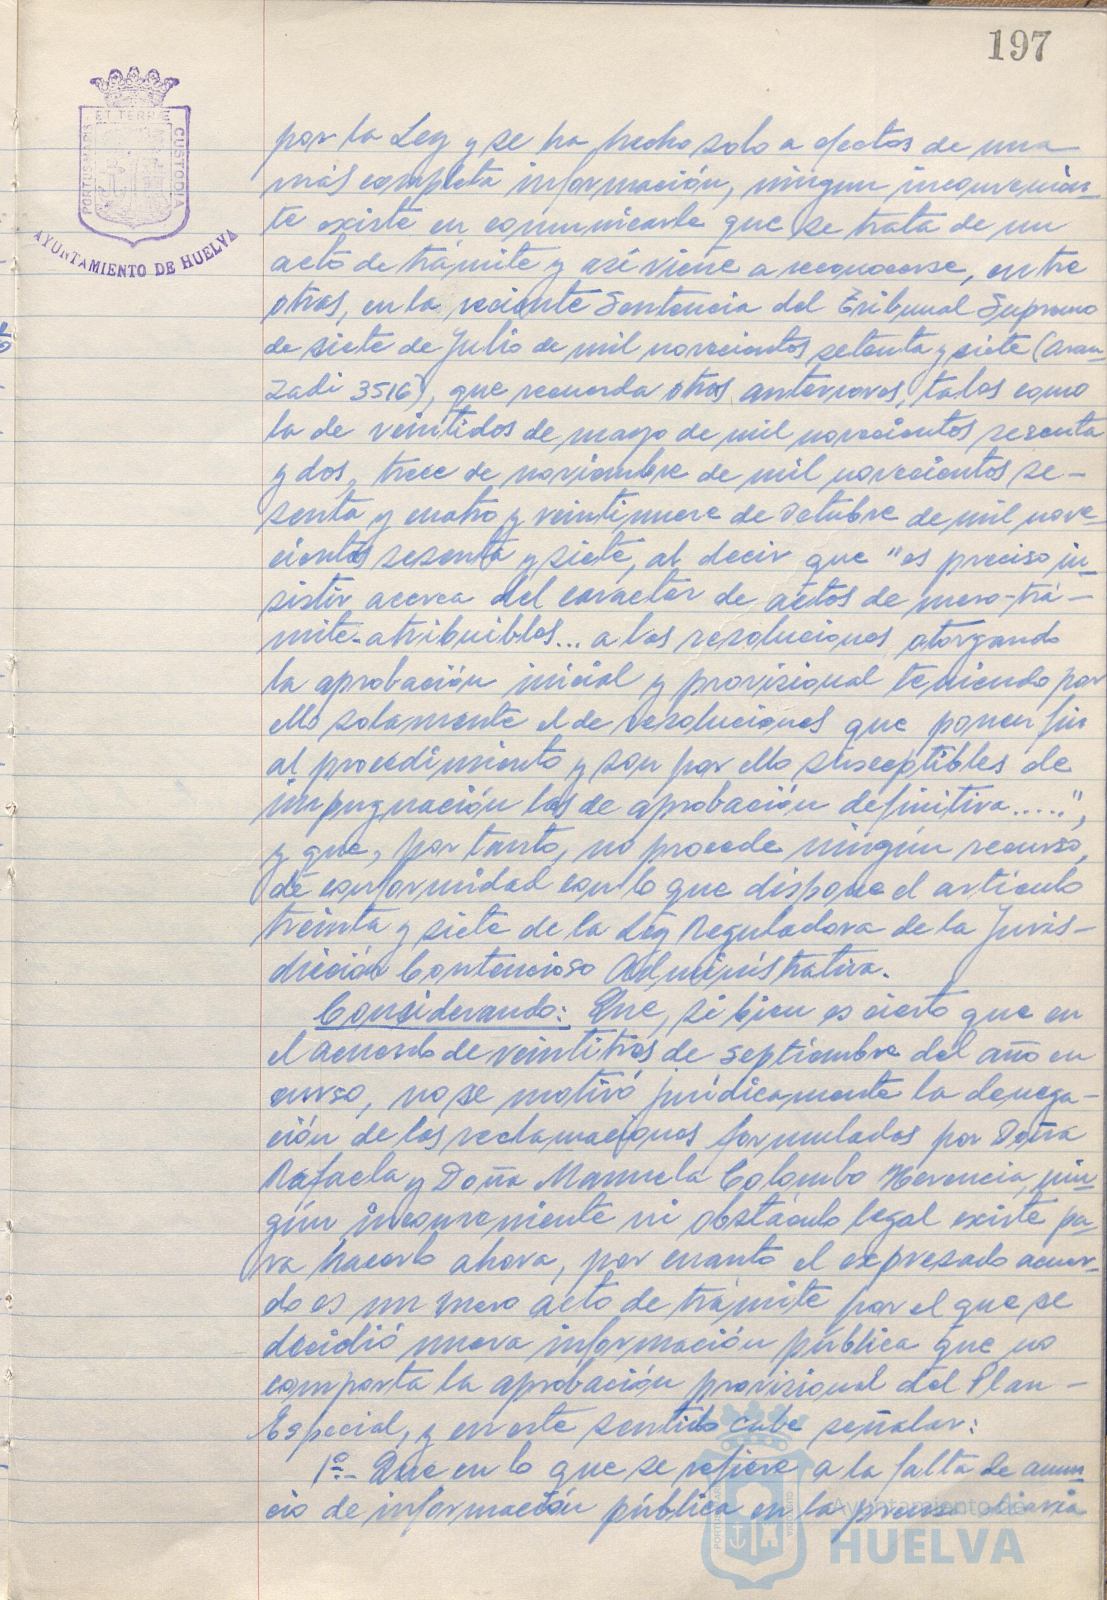 197
PORTUS MARIS ET TERRE CUSTODIA
AYUNTAMIENTO DE HUELVA
por la Ley y se ha hecho solo a efectos de una
más completa información, ningun inconvenien-
te existe en comunicarle que se trata de un
acto de trámite y asi viene a reconocerse, entre
otras, en la reciente Sentencia del Tribunal Supremo
de siete de Julio de mil novecientos setenta y siete (Aran-
zadi 3516), que recuerda otras anteriores, tales como
la de veintidos de mayo de mil novecientos sesenta
y dos, trece de noviembre de mil novecientos se-
senta y cuatro y veintinueve de octubre de mil nove-
cientos sesenta y siete, al decir que "es preciso in-
sistir acerca del caracter de actos de mero-trá-
mite-atribuibles... a las resoluciones otorgando
la aprobación inicial y provisional teniendo por
ello solamente el de resoluciones que ponen fin
al procedimiento y son por ello susceptibles de
impugnación las de aprobación definitiva.....",
y que, por tanto, no procede ningún recurso,
de conformidad con lo que dispone el articulo
treinta y siete de la Ley Reguladora de la Juris-
dicción Contencioso Administrativa.
Considerando: Que, si bien es cierto que en
el acuerdo de veintitres de septiembre del año en
curso, no se motivó jurídicamente la denega-
ción de las reclamaciones formuladas por Doña
Rafaela y Doña Manuela Colombo Herencia, nin-
gún inconveniente ni obstáculo legal existe pa-
ra hacerlo ahora, por cuanto el expresado acuer-
do es un mero acto de trámite por el que se
decidió nueva información pública que no
comporta la aprobación provisional del Plan-
Especial, y en este sentido cabe señalar:
1º.- Que en lo que se refiere a la falta de anun-
cio de información pública en la prensa diaria
Ayuntamiento de
HUELVA